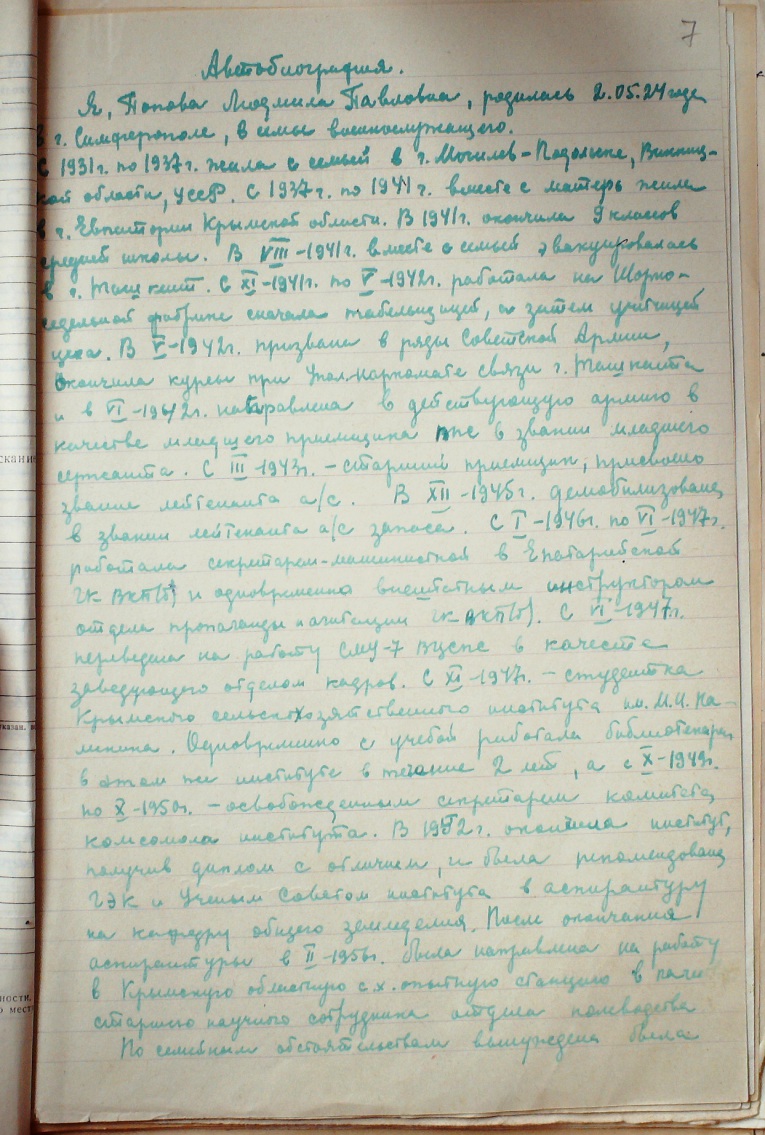 7
Автобиография.
Я, Попова Людмила Павловна, родилась 2.05.24 года
в г. Симферополе, в семье военнослужащего.
С 1931г. по 1937г. жила с семьей в г. Могилев-Подольске, Винниц-
кой области, УССР. С 1937г. по 1941г. вместе с матерь жила
в г. Евпатории Крымской области. В 1941г. окончила 9 классов
средней школы. В VIII-1941г. вместе с семьей эвакуировалась
в г. Ташкент. С XI-1941г. по V-1942г. работала на Шорно-
седельной фабрике сначала табельщицей, а затем учетчицей
цеха. В V-1942г. призвана в ряды Советской Армии,
окончила курсы при Упол. наркомате связи г. Ташкента
и в VI-1942г. направлена в действующую армию в
качестве младшего приемщика ППС в звании младшего
сержанта. С III-1943г. - старший приемщик, присвоено
звание лейтенанта а/с. В XII-1945г. демобилизована
в звании лейтенанта а/с запаса. С I-1946г. по VI-1947г.
работала секретарем-машинисткой в Евпаторийской
ГК ВКП(б) и одновременно внештатным инструктором
отдела пропаганды и агитации ГК ВКП(б). С VI-1947г.
переведена на работу СМУ-7 ВЦСПС в качестве
заведующего отделом кадров. С XI-1947г. - студентка
Крымского сельскохозяйственного института им. М.И. Ка-
линина. Одновременно с учебой работала библиотекарем
в этом же институте в течение 2 лет, а с X-1949г.
по X-1950г. - освобожденным секретарем комитета
комсомола института. В 1952г. окончила институт,
получив диплом с отличием, и была рекомендована
ГЭК и Ученым Советом института в аспирантуру
на кафедру общего земледелия. После окончания
аспирантуры в II-1956г. была направлена на работу
в Крымскую областную с.х. опытную станцию в кач-ве
старшего научного сотрудника отдела полеводства
По семейным обстоятельствам вынуждена была